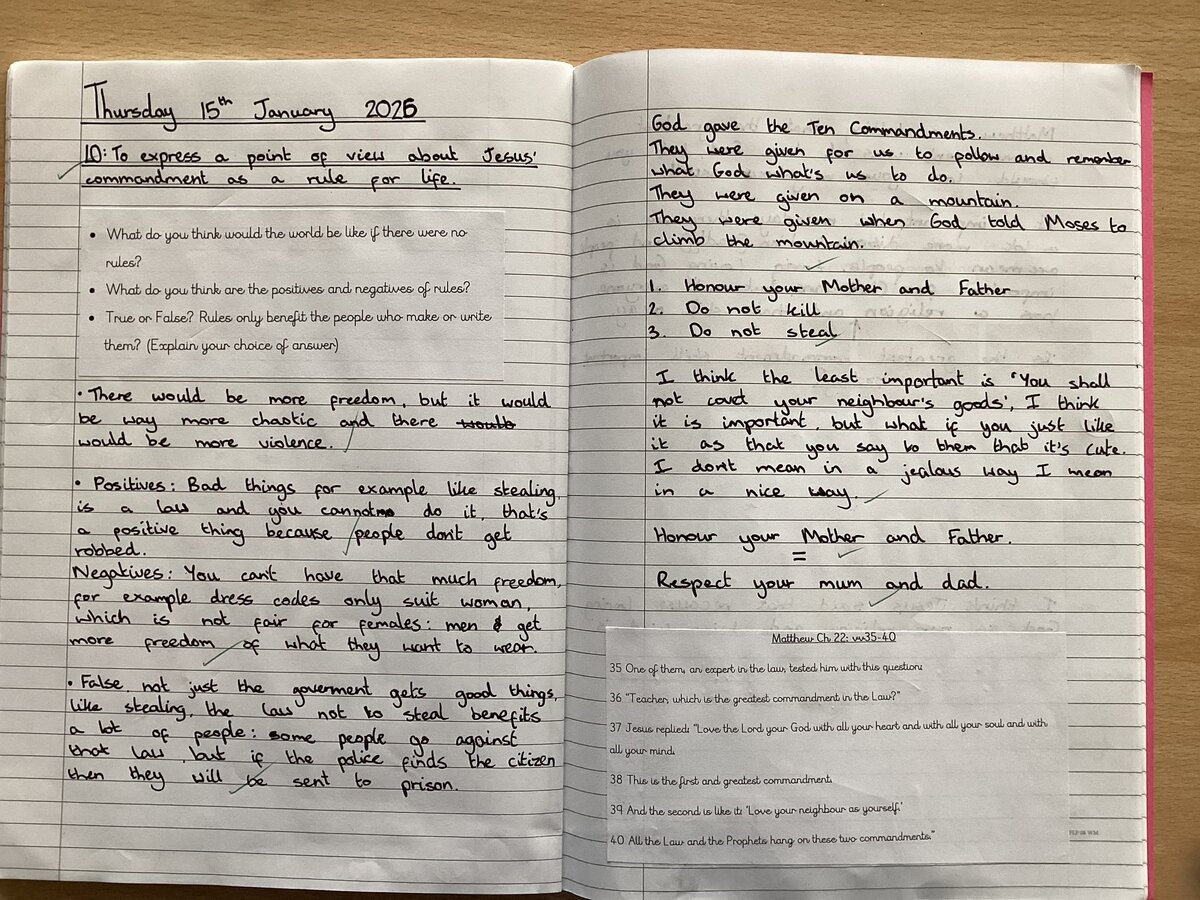 Thursday 15th January 2026
LO: To express a point of view about Jesus'
commandment as a rule for life.
• What do you think would the world be like if there were no
rules?
• What do you think are the positives and negatives of rules?
• True or False? Rules only benefit the people who make or write
them? (Explain your choice of answer)
• There would be more freedom, but it would
be way more chaotic and there
would be more violence.
• Positives: Bad things for example like stealing,
is a law and you cannot do it, that's
a positive thing because people don't get
robbed.
Negatives: You can't have that much freedom,
for example dress codes only suit woman,
which is not fair for females: men get
more freedom of what they want to wear.
• False, not just the goverment gets good things,
like stealing, the law not to steal benefits
a lot of people: some people go against
that law, but if the police finds the citizen
then they will be sent to prison.
God gave the Ten Commandments.
They were given for us to follow and remember
what God what's us to do.
They were given on a mountain.
They were given when God told Moses to
climb the mountain.
1. Honour your Mother and Father
2. Do not kill
3. Do not steal
I think the least important is 'You shall
not covet your neighbour's goods', I think
it is important, but what if you just like
it as that you say to them that it's cute.
I don't mean in a jealous way I mean
in a nice way.
Honour your Mother and Father.
=
Respect your mum and dad.
Matthew Ch 22: vv35-40
35 One of them, an expert in the law, tested him with this question:
36 "Teacher, which is the greatest commandment in the Law?"
37 Jesus replied: "Love the Lord your God with all your heart and with all your soul and with
all your mind.
38 This is the first and greatest commandment.
39 And the second is like it: 'Love your neighbour as yourself.'
40 All the Law and the Prophets hang on these two commandments."